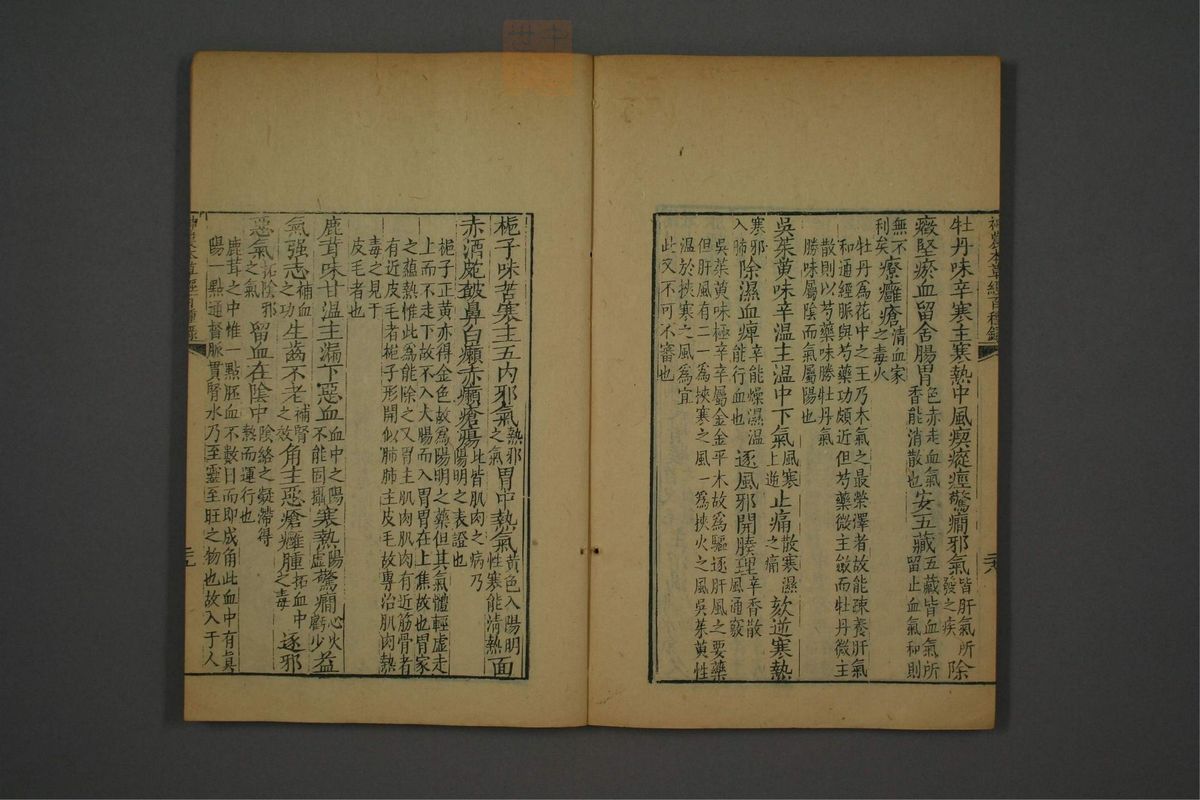 神農本草經百種錄
牡丹味辛寒主寒熱中風瘈瘲痙驚癎邪氣皆肝氣所發之疾除
癥堅瘀血留舍腸胃色赤走血氣香能消散也安五藏五藏皆血氣所留止血氣和則
無不利矣療癰瘡清血家之毒火
牡丹爲花中之王乃木氣之最榮澤者故能疎養肝氣
和通經脈與芍藥功頗近但芍藥微主斂而牡丹微主
散則以芍藥味勝牡丹氣
勝味屬陰而氣屬陽也
吳茱萸味辛溫主溫中下氣風寒上逆止痛散寒濕之痛欬逆寒熱
寒邪入肺除濕血痺辛能燥濕溫能行血也逐風邪開腠理辛香散風通竅
吳茱萸味極辛辛屬金金平木故爲驅逐肝風之要藥
但肝風有二一爲挾寒之風一爲挾火之風吳茱萸性
溫於挾寒之風爲宜
此又不可不審也
梔子味苦寒主五内邪氣熱邪之氣胃中熱氣黃色入陽明性寒能清熱面
赤酒皰皶鼻白癩赤癩瘡瘍此皆肌肉之病乃陽明之表證也
梔子正黃亦得金色故爲陽明之藥但其氣體輕虛走
上而不走下故不入大腸而入胃胃在上焦故也胃家
之蘊熱惟此爲能除之又胃主肌肉肌肉有近筋骨者
有近皮毛者梔子形開似肺肺主皮毛故專治肌肉熱
毒之見于
皮毛者也
鹿茸味甘溫主漏下惡血血中之陽不能固攝寒熱陽虛驚癎心火虧少益
氣强志補血之功生齒不老補腎之效角主惡瘡癰腫拓血中之毒逐邪
惡氣拓陰邪之氣留血在陰中陰絡之凝滯得熱而運行也
鹿茸之中惟一點胚血不數日而即成角此血中有真
陽一點通督脈貫腎水乃至靈至旺之物也故入于人
神農本草經百種錄